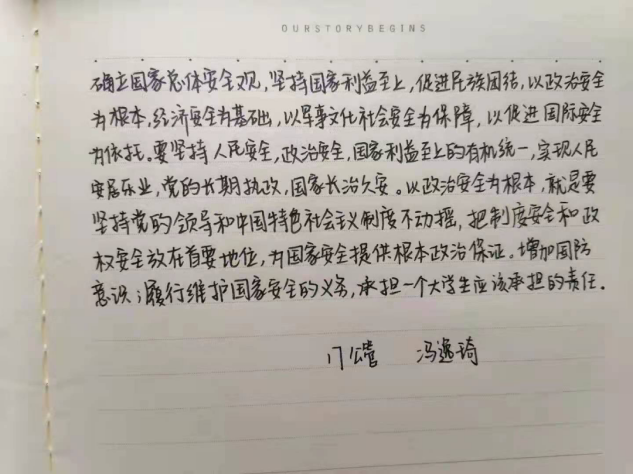 OURSTORYBEGINS
确立国家总体安全观，坚持国家利益至上，促进民族团结，以政治安全
为根本，经济安全为基础，以军事文化社会安全为保障，以促进国际安全
为依托。要坚持人民安全，政治安全，国家利益至上的有机统一，实现人民
安居乐业，党的长期执政，国家长治久安。以政治安全为根本，就是要
坚持党的领导和中国特色社会主义制度不动摇，把制度安全和政
权安全放在首要地位，为国家安全提供根本政治保证。增加国防
意识；履行维护国家安全的义务，承担一个大学生应该承担的责任。
公管 冯逸琦